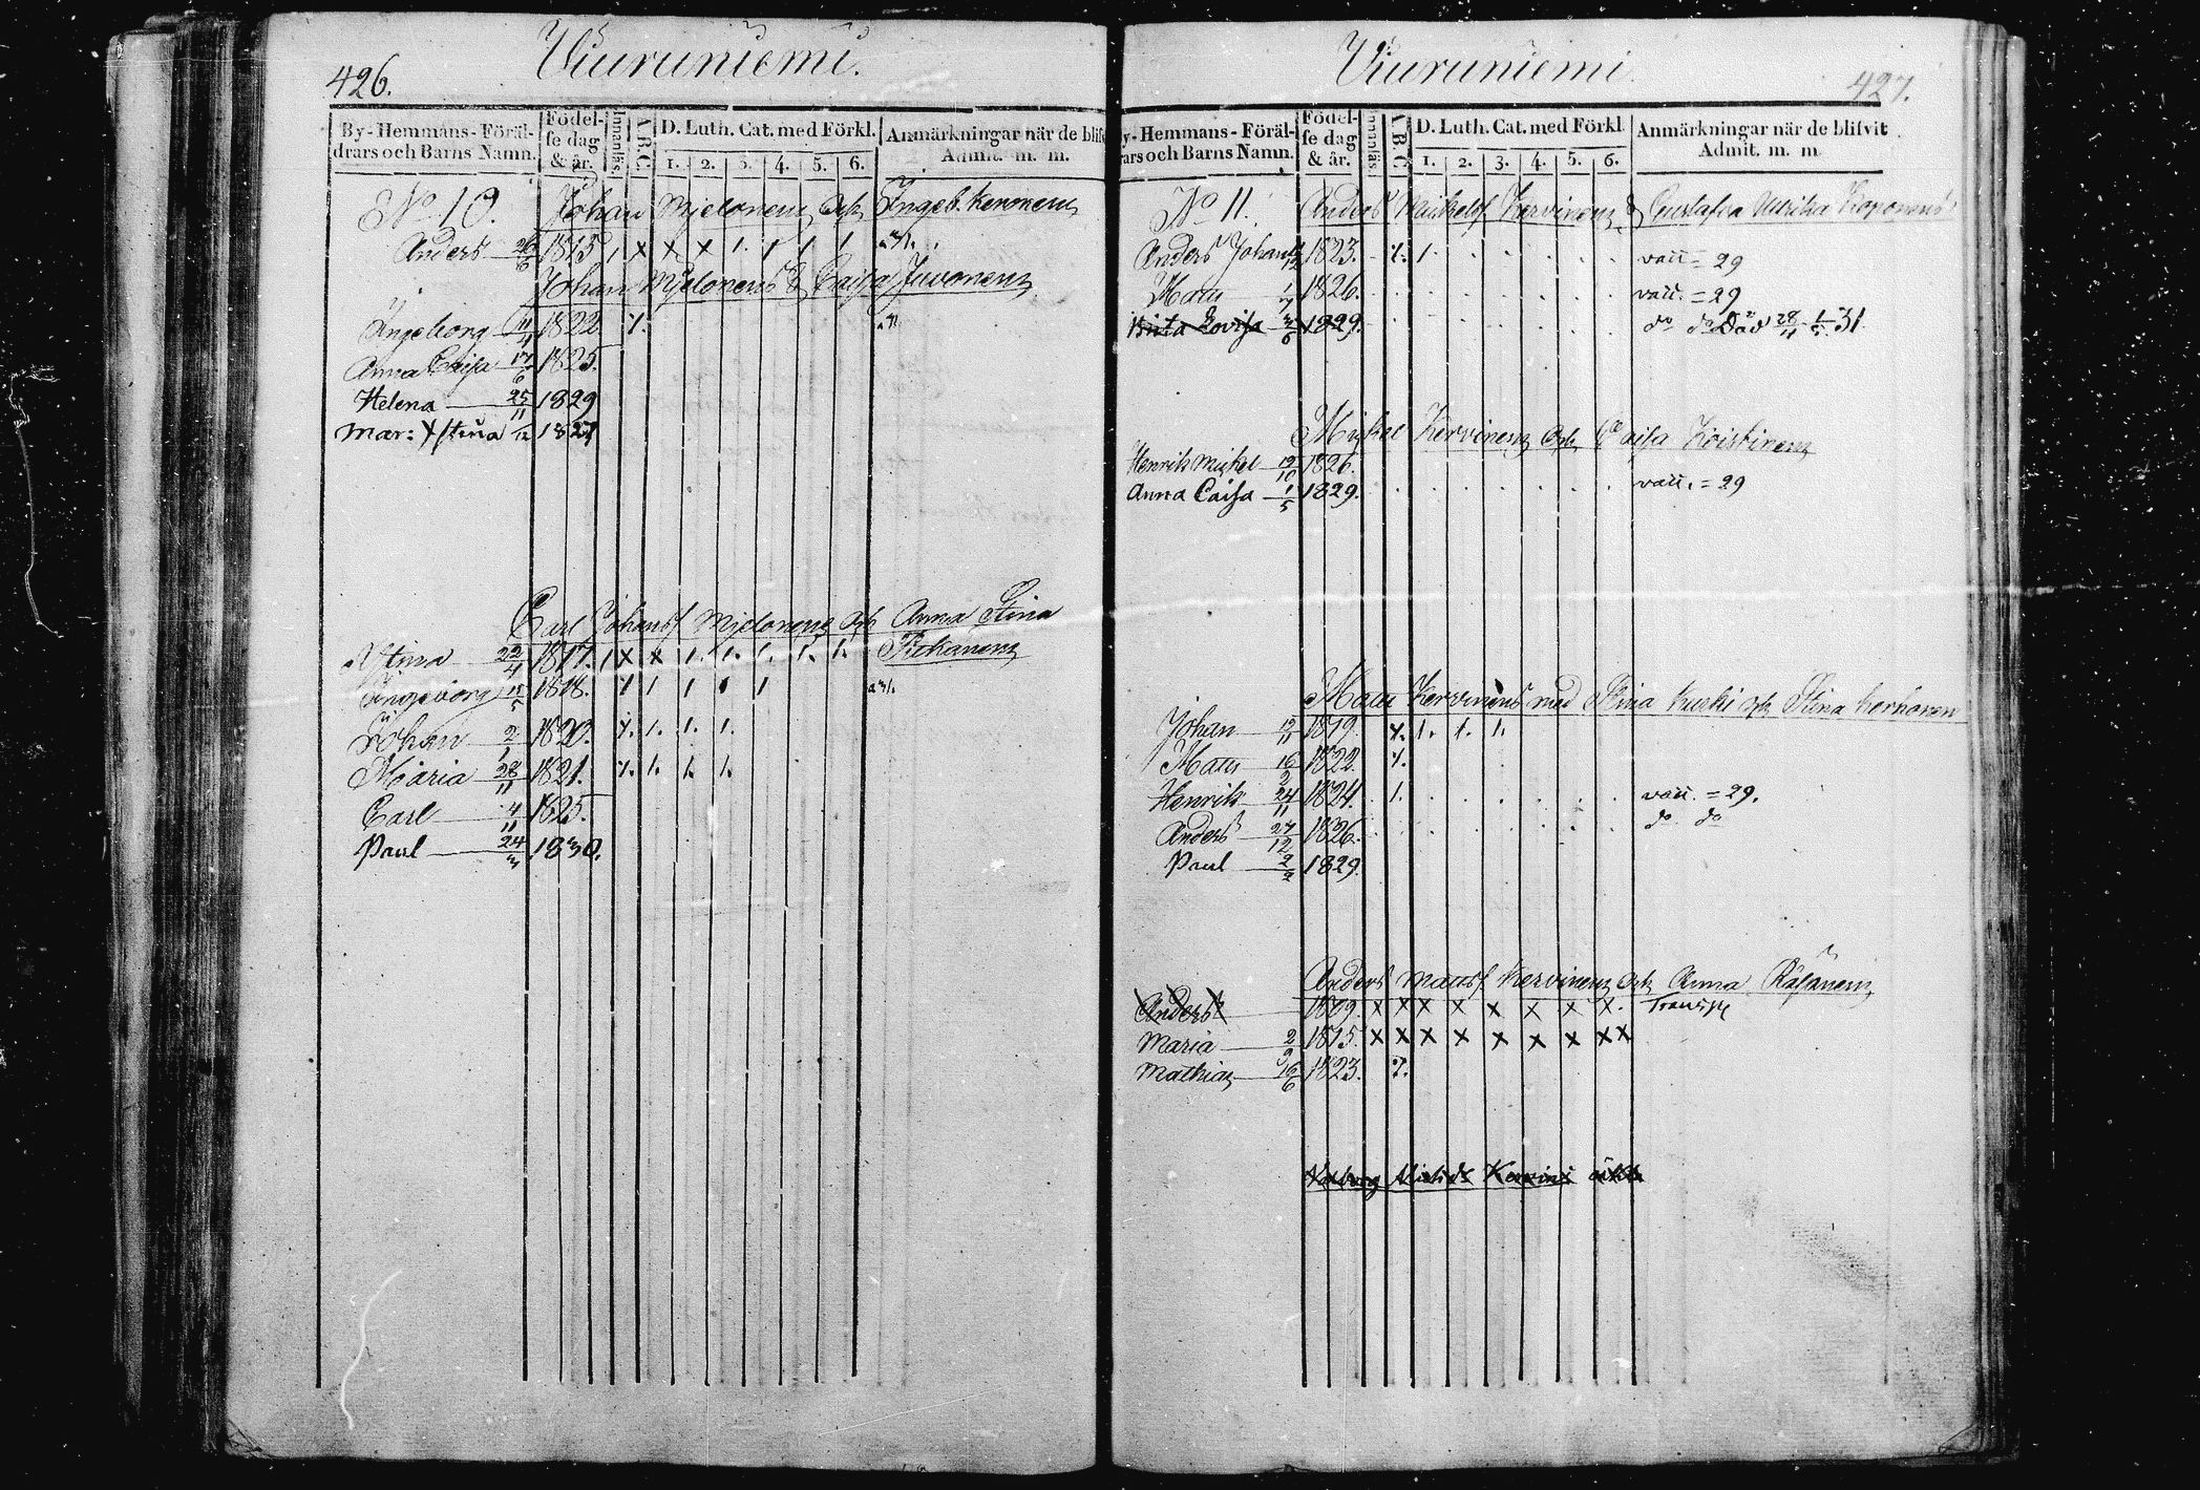 426.
Viuruniemi.
By-Hemmans-Föräl-
drars och Barns Namn.
Födel-
se dag
& år.
Innanläs
A.B.C.
D. Luth. Cat. med Förkl.
1. 2. 3. 4. 5. 6.
Anmärkningar när de blifv
Admit. m. m.
No 10. Johan Mjelonen och Ingeb. Keronen
Anders 26/6 1815 1 x x x 1. 1 1 1
Johan Mjelonens & Caisa Juvonen
Ingeborg 11/4 1822 
Anna Caisa 17/6 1825.
Helena 25/11 1829
Mar: Xstina 1/12 1827
Carl Johansf Mjelonens och Anna Stina
Pitkänen
Stina 22/4 1817. 1 x x 1. 1. 1. 1. 1.
Ingeborg 11/5 1818. 1 1 1 1
Johan 2/1 1820. 1. 1. 1.
Maria 28/11 1821. 1. 1. 1.
Carl 4/11 1825.
Paul 24/3 1830.
427.
Viuruniemi
y-Hemmans-Föräl-
rars och Barns Namn.
Födel-
se dag
& år.
Innanläs
A B C
D. Luth. Cat. med Förkl.
1. 2. 3. 4. 5. 6.
Anmärkningar när de blifvit
Admit. m. m.
No 11. Anders Mickelsf Kervinen & Gustafva Ulrika Koponens
Anders Johan 1823. 1. vacc = 29
Matts 1/7 1826. vacc. = 29
Brita Lovisa 3/6 1829. do do Död 28/4 1/5 31.
Mickel Kervinen och Caisa Koistinen
Henrik Mickel 19/10 1826.
Anna Caisa 1/5 1829. vacc. = 29
Matts Kervinens med Stina Kuski och Stina Kerkonen
Johan 19/11 1819. 1. 1. 1.
Matts 16/2 1822.
Henrik 24/11 1824. 1. vacc. = 29.
Anders 27/12 1826. do do
Paul 2/2 1829.
Anders Mattsf. Kervinen och Anna Räsänen
Anders 1809. x x x x x x x x. Transp
Maria 2/9 1815. x x x x x x x x x
Mathias 16/6 1823.